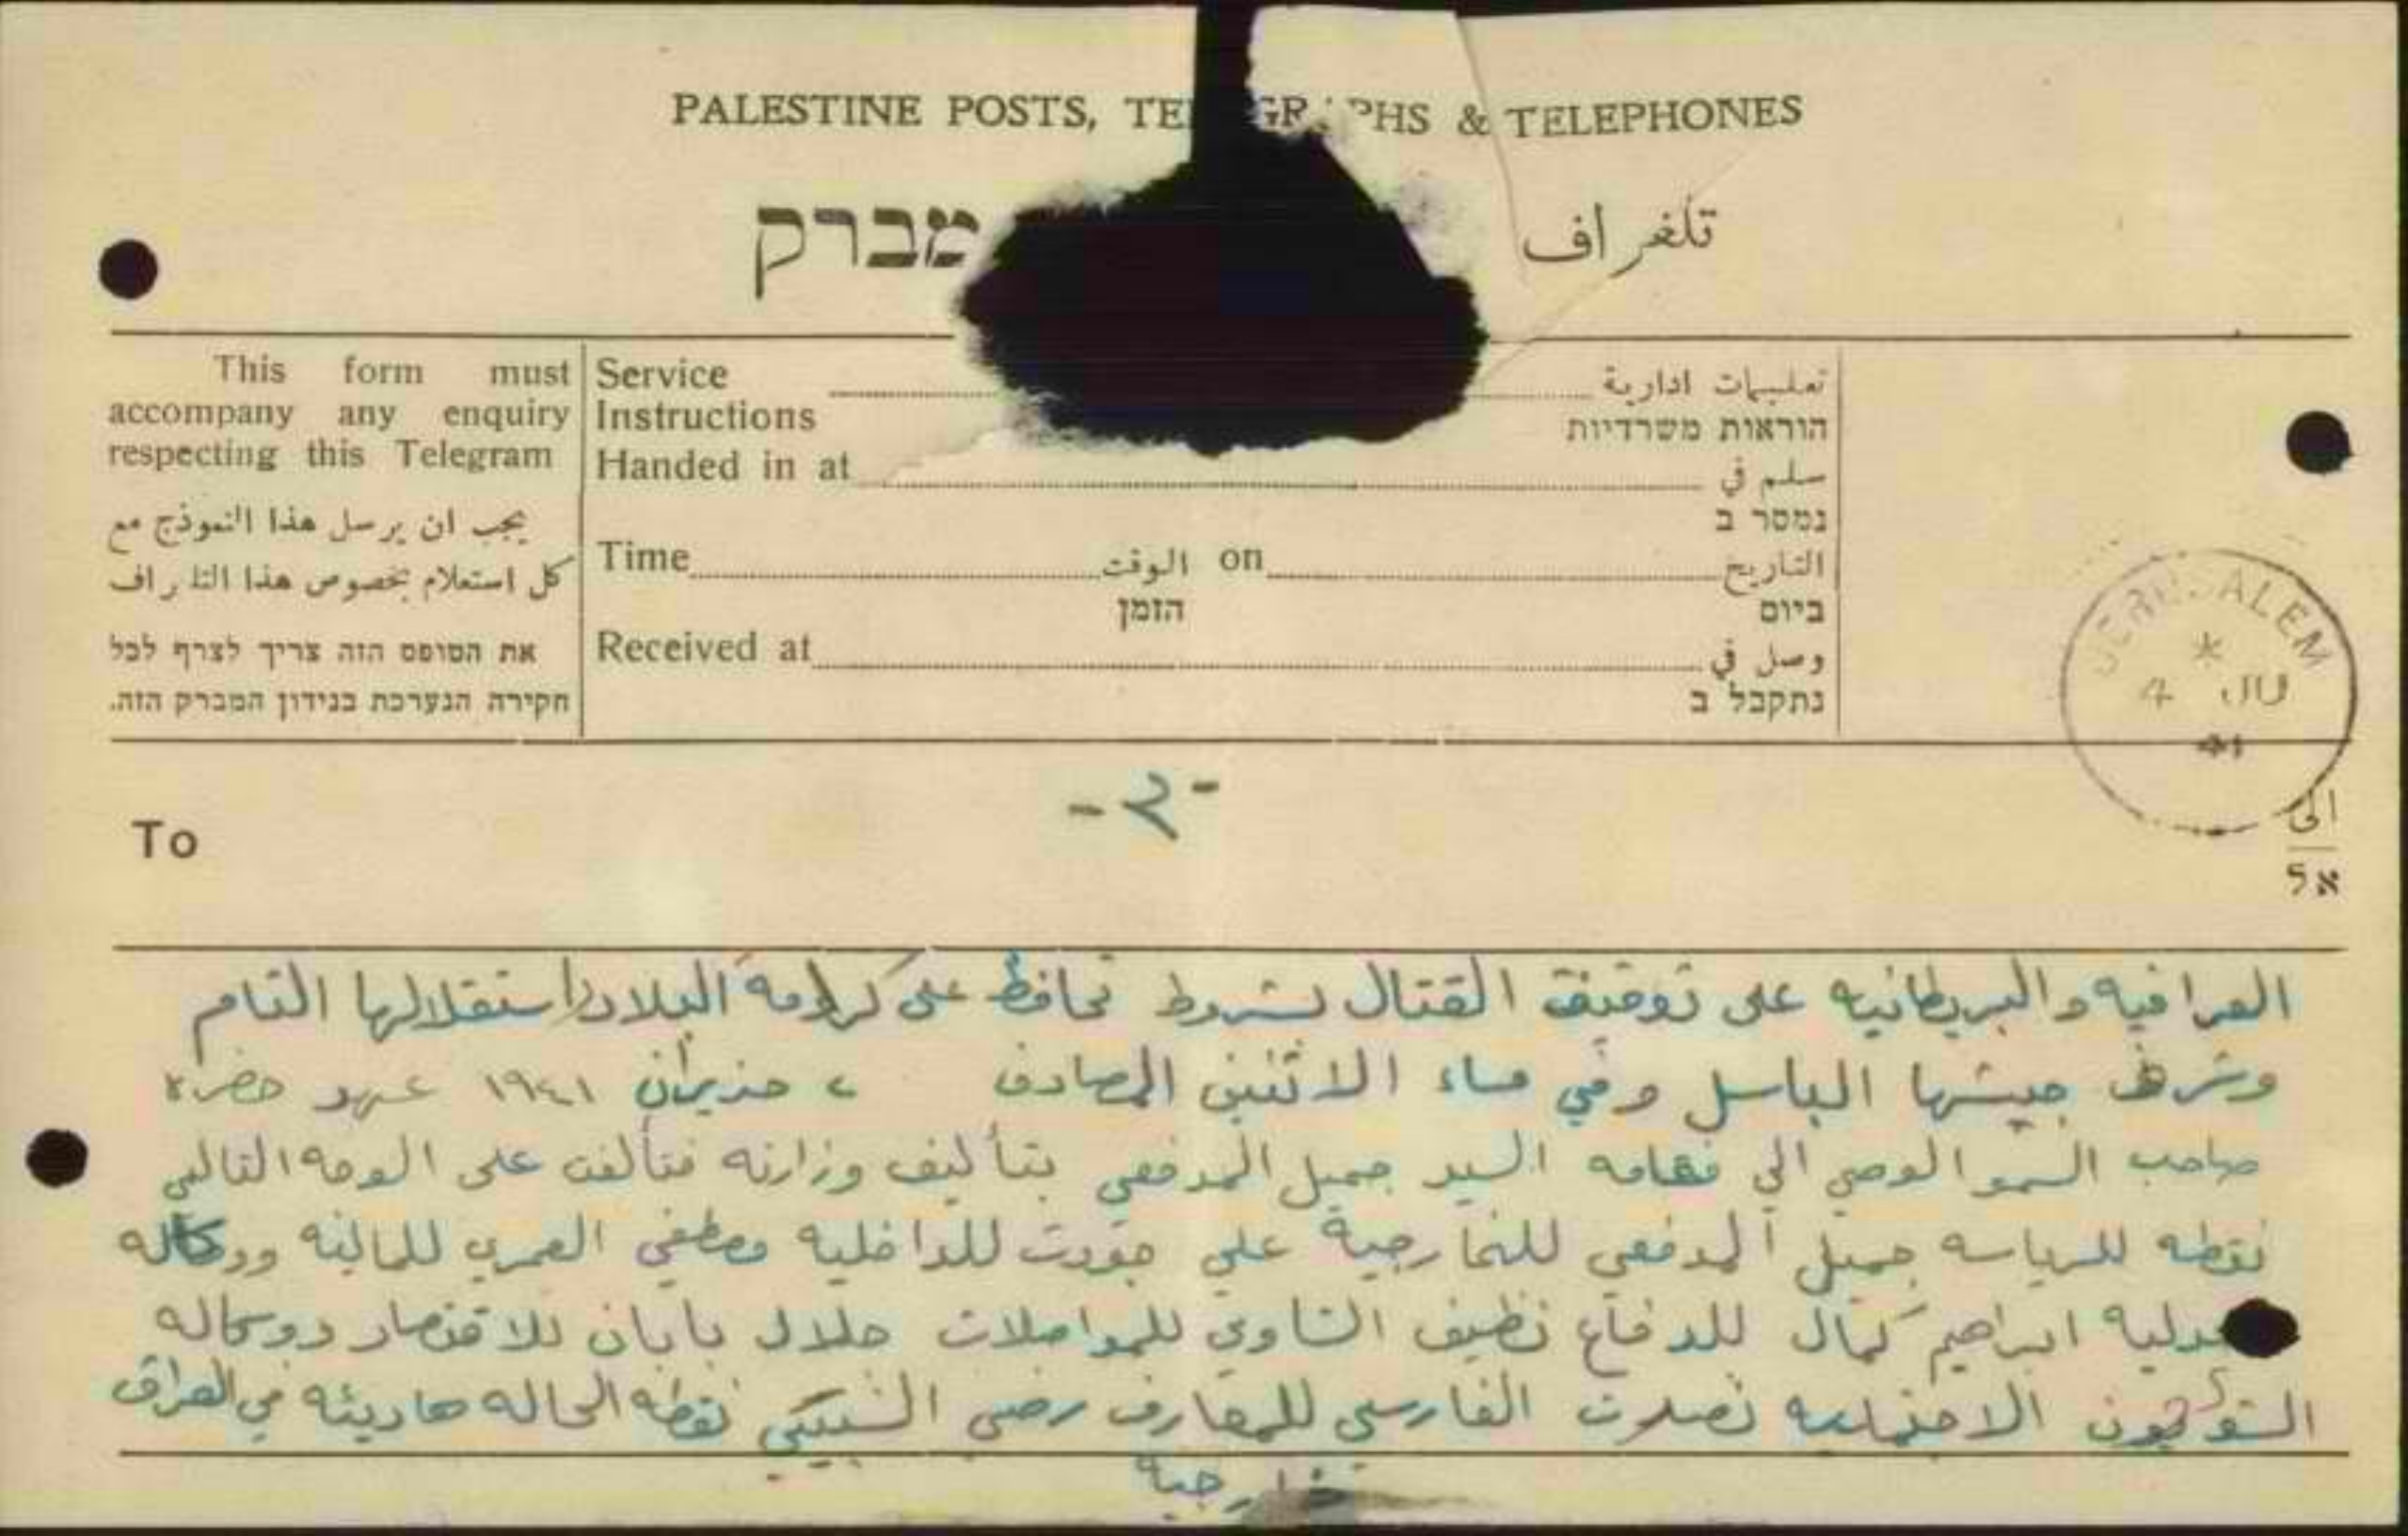 PALESTINE POSTS, TE GR PHS & TELEPHONES
מברק
تلغراف
This form must
accompany any enquiry
respecting this Telegram
يجب ان يرسل هذا النموذج مع
كل استعلام بخصوص هذا التلـراف
את הטופס הזה צריך לצרף לכל
חקירה הנערכת בנידון המברק הזה.
Service تعليمات ادارية
Instructions הוראות משרדיות
Handed in at سلم في
נמסר ב
Time الوقت on التاريخ
הזמן ביום
Received at وصل في
נתקבל ב
JERUSALEM
4 JU
41
To
-٢-
الى
אל
العراقيه والبريطانيه على توقيف القتال بشروط تحافظ على كرامة البلاد واستقلالها التام
وشرف جيشها الباسل وفي مساء الاثنين المصادف ٢ حزيران ١٩٤١ عهد حضرة
صاحب السمو الوصي الى فخامه السيد جميل المدفعي بتأليف وزارته فتألفت على الوجه التالي
نقطه للرياسه جميل المدفعي للخارجية علي جودت للداخليه مصطفى العمري للماليه ووكاله
عدليه ابراهيم كمال للدفاع نظيف الشاوي للمواصلات جلال بابان للاقتصاد ووكاله
الشؤون الاجتماعيه نصرت الفارسي للمعارف رضى الشبيبي نقطه الحاله هاديئه في العراق
خارجية